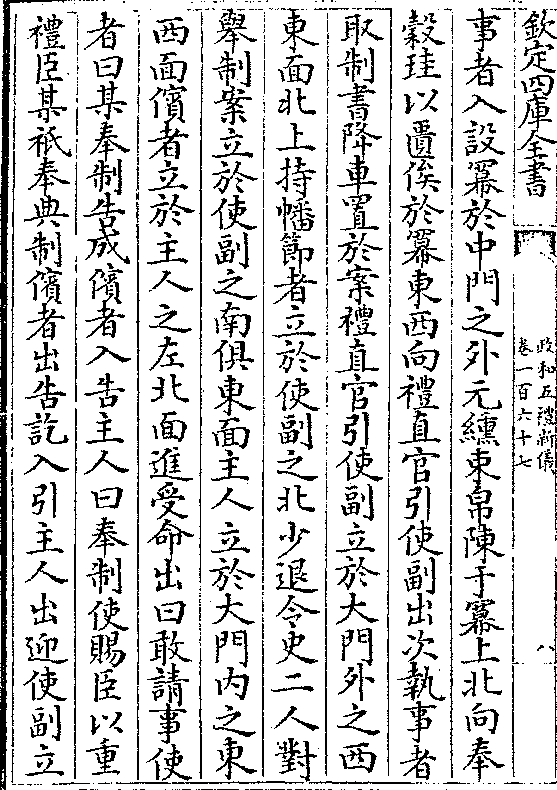 欽定四庫全書
政和五禮新儀
卷一百六十七
八
事者入設羃於中門之外元纁束帛陳于羃上北向奉
穀珪以匱俟於羃東西向禮直官引使副出次執事者
取制書降車置於案禮直官引使副立於大門外之西
東面北上持幡節者立於使副之北少退令史二人對
舉制案立於使副之南俱東面主人立於大門内之東
西面儐者立於主人之左北面進受命出曰敢請事使
者曰某奉制告成儐者入告主人曰奉制使賜臣以重
禮臣某祗奉典制儐者出告訖入引主人出迎使副立